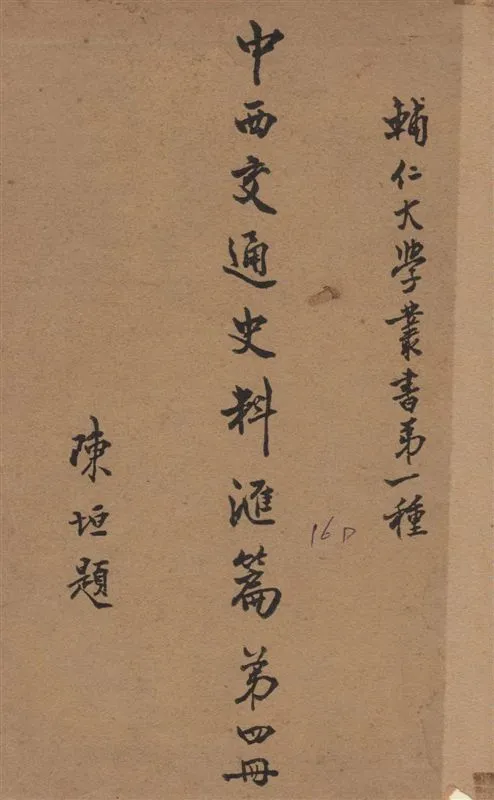 輔仁大學叢書第一種
中西交通史料滙篇 第四冊
16D
陳垣題